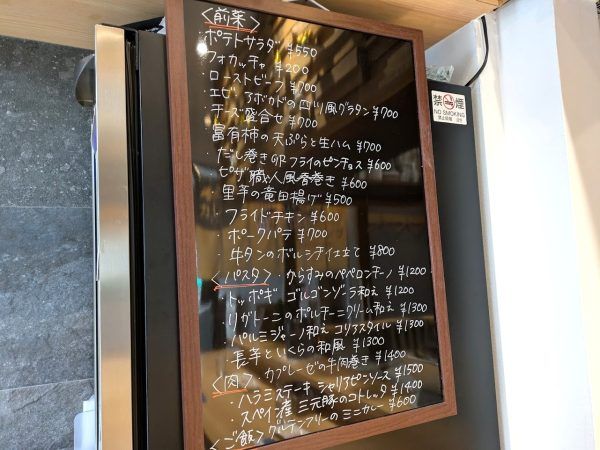 〈前菜〉
ポテトサラダ ¥550
フォカッチャ ¥200
・ローストビーフ ¥700
・エビとアボカドの四川風グラタン ¥700
・チーズ盛合せ ¥700
富有柿の天ぷらと生ハム ¥700
だし巻きorフライのピンチョス ¥600
ピザ職人風春巻き ¥600
・里芋の竜田揚げ ¥500
・フライドチキン ¥600
・ポークパテ ¥700
・牛タンのボルシチ仕立て ¥800
〈パスタ〉・からすみのペペロンチーノ ¥1200
・トッポギ ゴルゴンゾーラ和え ¥1200
・リガトーニのポルチーニクリーム和え ¥1300
・パルミジャーノ和え コリアスタイル ¥1300
・長芋といくらの和風 ¥1300
〈肉〉 カプレーゼの牛肉巻き ¥1400
・ハラミステーキ シャリアピンソース ¥1500
・スペイン産 三元豚のコトレッタ ¥1400
〈ご飯〉グルテンフリーのミニカレー ¥600
禁煙
NO SMOKING